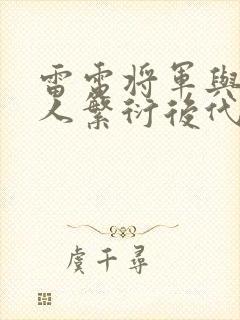 雷雷将軍與
人繁衍後代
虞千尋